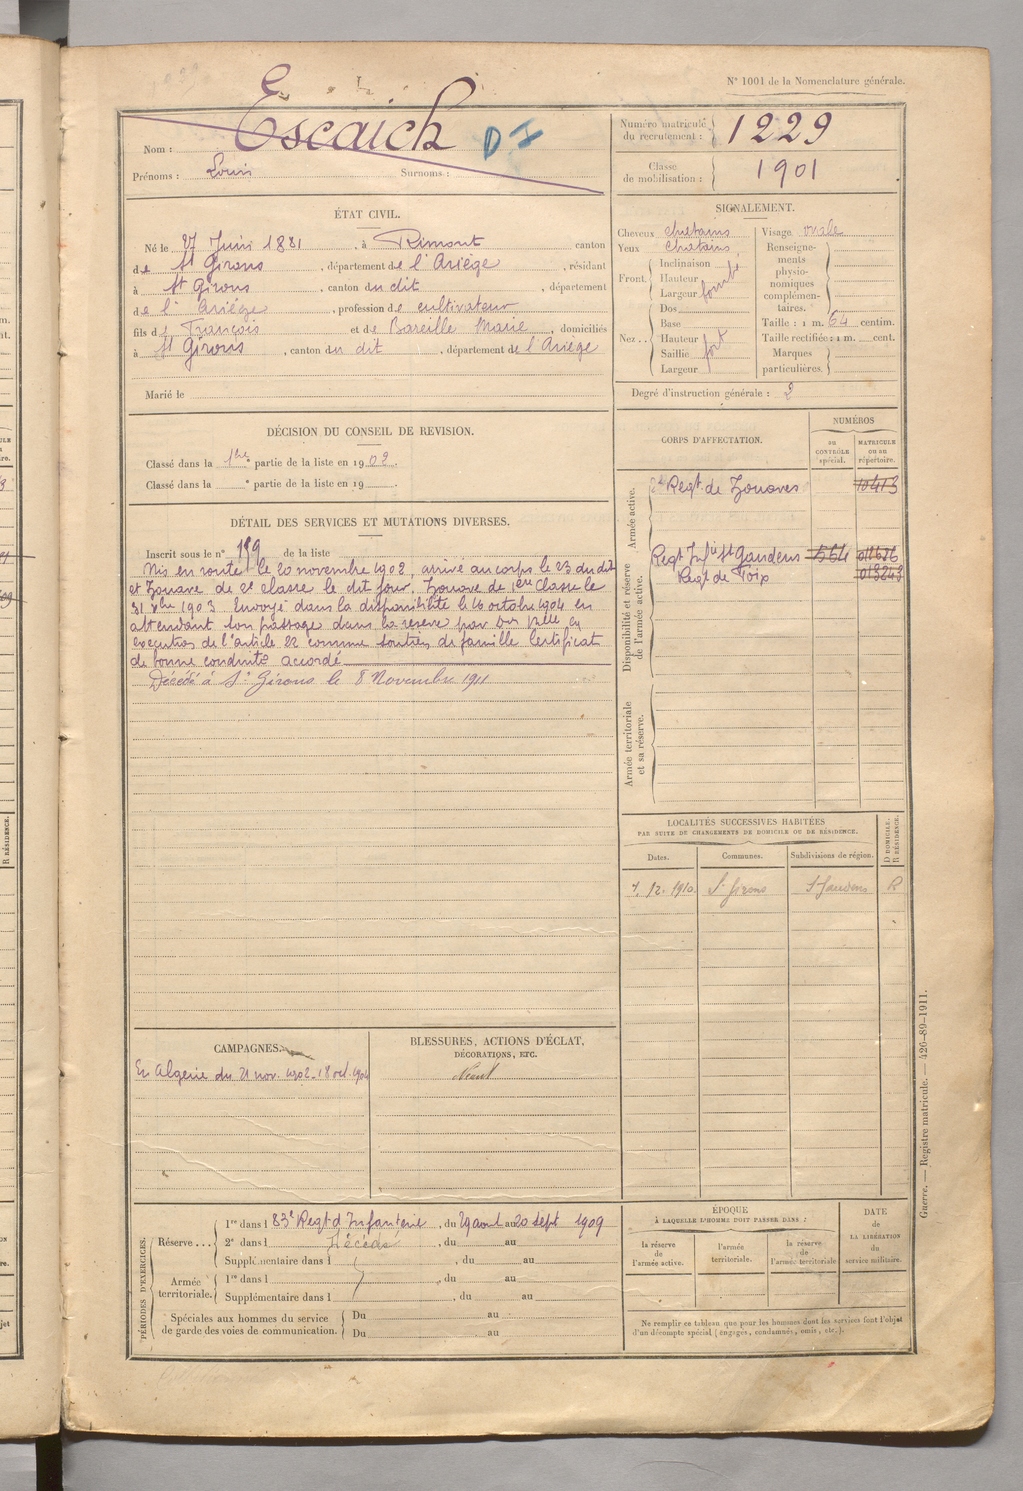 N° 1001 de la Nomenclature générale.
Nom : Escaich
D I
Prénoms : Louis Surnoms :
Numéro matricule du recrutement : 1229
Classe de mobilisation : 1901
ÉTAT CIVIL.
Né le 27 Juin 1881, à Rimont canton
de St Girons, département de l'Ariège, résidant
à St Girons, canton du dit, département
de l'Ariège, profession de cultivateur
fils de François et de Bareille Marie, domiciliés
à St Girons, canton du dit, département de l'Ariège
Marié le
SIGNALEMENT.
Cheveux chatains
Yeux chatains
Front. Inclinaison
Hauteur
Largeur
Nez.. Dos
Base
Hauteur
Saillie fort
Largeur
Visage ovale
Renseignements physionomiques complémentaires.
Taille : 1 m. 64 centim.
Taille rectifiée : 1 m. cent.
Marques particulières.
Degré d'instruction générale : 2
DÉCISION DU CONSEIL DE REVISION.
Classé dans la 1re partie de la liste en 1902.
Classé dans la ° partie de la liste en 19
DÉTAIL DES SERVICES ET MUTATIONS DIVERSES.
Inscrit sous le n° 119 de la liste
Mis en route le 20 novembre 1902, arrivé au corps le 23 du dit
et Zouave de 2e classe le dit jour. Zouave de 1ère Classe le
31 Xbre 1903 Envoyé dans la disponibilité le 16 octobre 1904 en
attendant son passage dans la réserve par
execution de l'article 22 comme soutien de famille Certificat
de bonne conduite accordé
Décédé à St Girons le 8 Novembre 1911
CORPS D'AFFECTATION.
NUMÉROS
AU CONTRÔLE spécial.
MATRICULE OU AU répertoire.
Armée active.
Regt de Zouaves 10413
Disponibilité et réserve de l'armée active.
Regt Infie St Gaudens 564 011676
Regt de Foix 013243
Armée territoriale et sa réserve.
LOCALITÉS SUCCESSIVES HABITÉES
PAR SUITE DE CHANGEMENTS DE DOMICILE OU DE RÉSIDENCE.
Dates. Communes. Subdivisions de région. D DOMICILE. R RÉSIDENCE.
12.1910. St Girons St Gaudens R
CAMPAGNES.
En Algérie du 21 nov. 1902 - 18 oct. 1904
BLESSURES, ACTIONS D'ÉCLAT,
DÉCORATIONS, ETC.
Néant
PÉRIODES D'EXERCICES.
Réserve... 1re dans l 83e Regt d'Infanterie, du 29 aout au 20 sept 1909
2e dans l Décédé, du au
Supplémentaire dans l, du au
Armée territoriale. 1re dans l, du au
Supplémentaire dans l, du au
Spéciales aux hommes du service de garde des voies de communication. Du au
Du au
ÉPOQUE
À LAQUELLE L'HOMME DOIT PASSER DANS :
la réserve de l'armée active.
l'armée territoriale.
la réserve de l'armée territoriale
DATE de LA LIBÉRATION du service militaire.
Ne remplir ce tableau que pour les hommes dont les services font l'objet
d'un décompte spécial (engagés, condamnés, omis, etc.).
Guerre. — Registre matricule. — 426-89-1911.